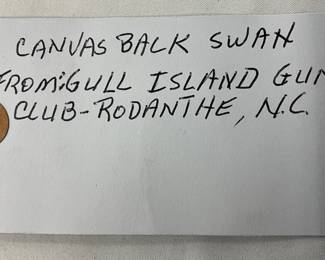 CANVAS BACK SWAN
FROM:GULL ISLAND GUN
CLUB-RODANTHE, N.C.